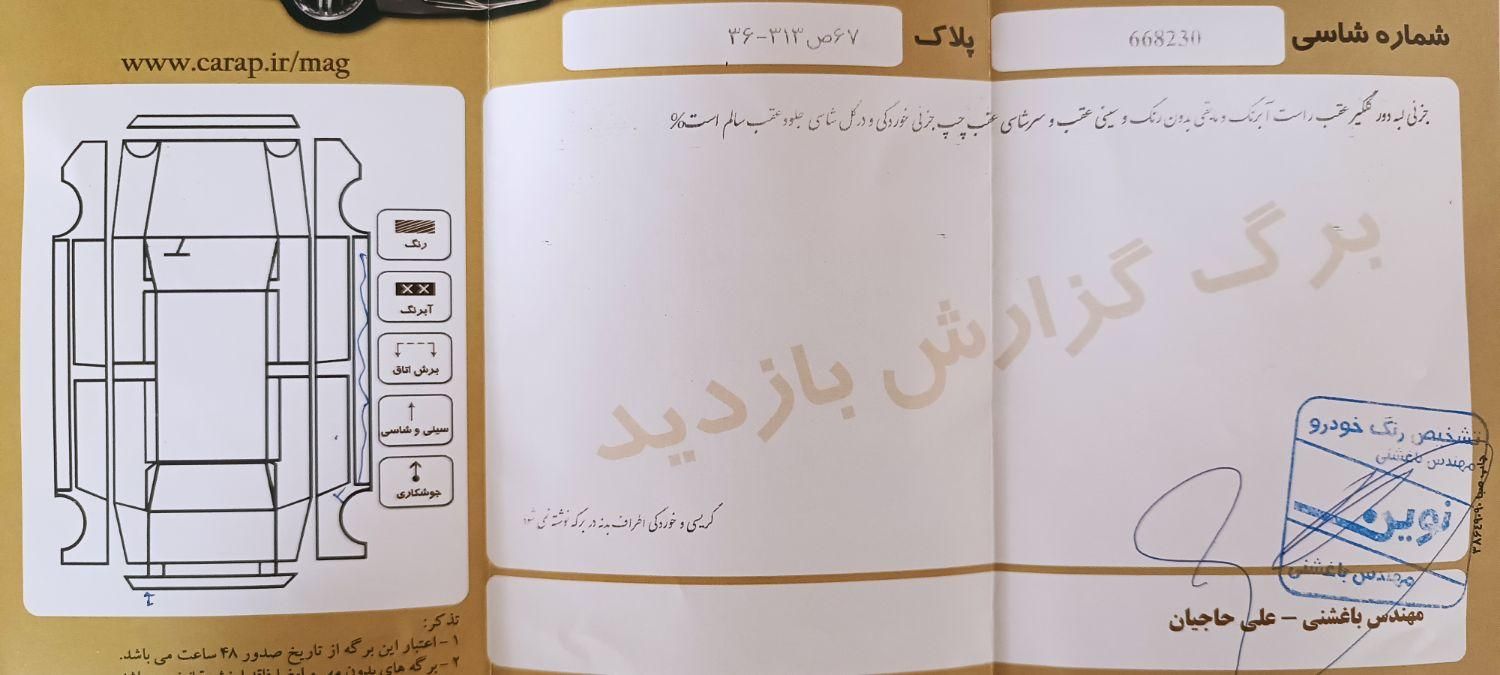 شماره شاسی
668230
پلاک
۶۷ص۳۱۳-۳۶
www.carap.ir/mag
جزئی لبه دور گلگیر عقب راست آبرنگ و مابقی بدون رنگ و سینی عقب و سرشاسی عقب چپ جزئی خوردگی و در کل شاسی جلو و عقب سالم است%
برگ گزارش بازدید
رنگ
آبرنگ
برش اتاق
سینی و شاسی
جوشکاری
گریسی و خوردگی اطراف بدنه در برگه نوشته نمی
تشخیص رنگ خودرو
مهندس باغشنی
نوین
مهندس باغشنی
مهندس باغشنی – علی حاجیان
تذکر:
۱- اعتبار این برگه از تاریخ صدور ۴۸ ساعت می باشد.
۲- برگه های بدون